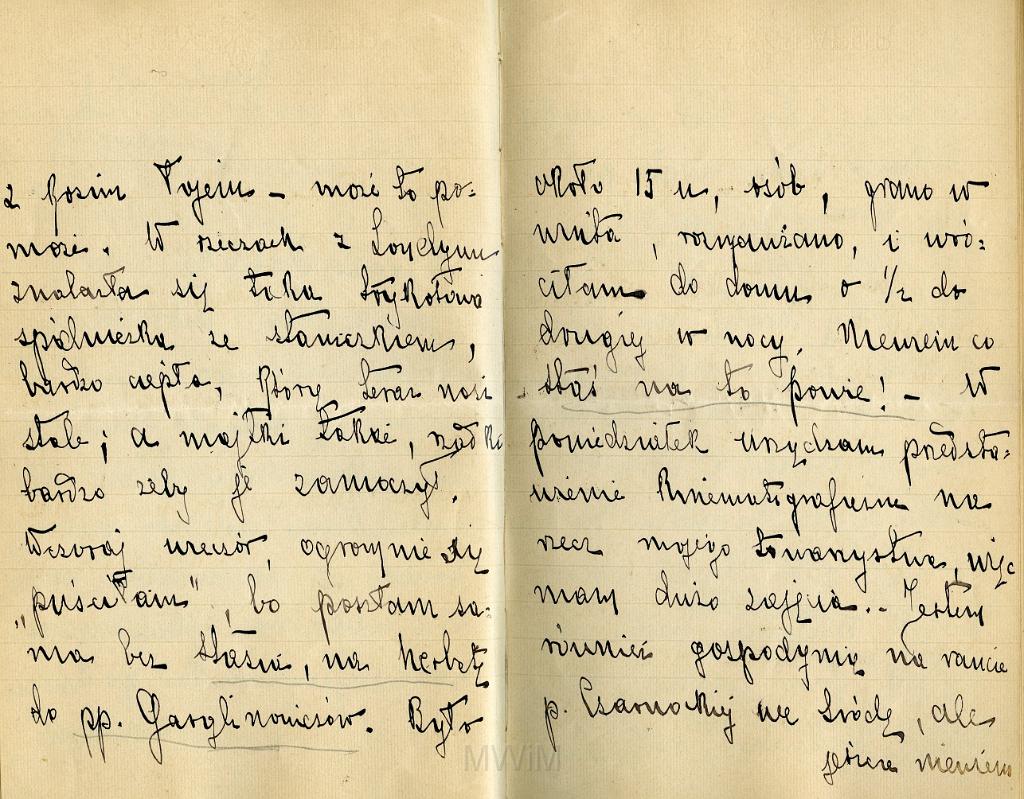 z kozim łojem – może to po=
może. W rzeczach z Londynu
znalazła się taka trykotowa
spódniczka ze staniczkiem,
bardzo ciepła, którą teraz nosi
stale; a majtki także, rzadko
bardzo żeby je zamoczył.
Wczoraj wieczór, ogromnie się
„puściłam", bo poszłam sa=
ma bez Stasia, na herbatę
do pp. Half
około 15 u, osób, grano w
winta, rozmawiano, i wró=
ciłam do domu o ½ do
drugiej w nocy. Niewiem co
Staś na to powie! – W
poniedziałek urządzam przedsta=
wienie kinematograficzne na
rzecz mojego towarzystwa, więc
mam dużo zajęcia.. Jestem
również gospodynią na raucie
p. Czarnockiej we środę, ale
jeszcze niewiem
MWiM